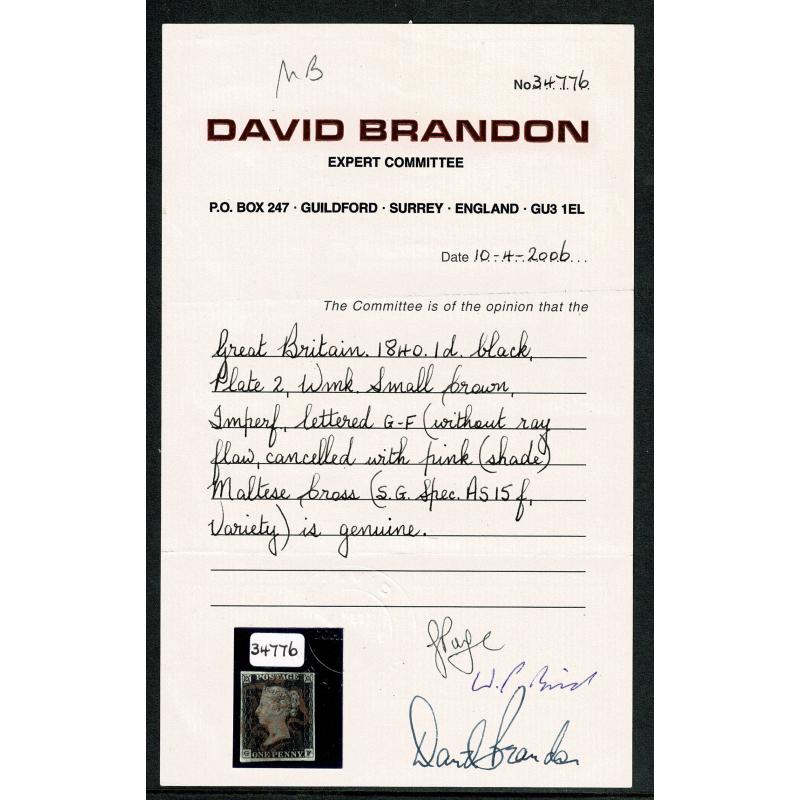 MB
No 34776
DAVID BRANDON
EXPERT COMMITTEE
P.O. BOX 247 · GUILDFORD · SURREY · ENGLAND · GU3 1EL
Date 10-4-2006
The Committee is of the opinion that the
Great Britain. 1840. 1d. black,
Plate 2, Wmk. Small Crown,
Imperf, lettered G-F (without ray
flaw, cancelled with pink (shade)
Maltese Cross (S.G. Spec. AS15f,
Variety) is genuine.
34776
POSTAGE
G ONE PENNY F
JPage
W.P. Bird
David Brandon